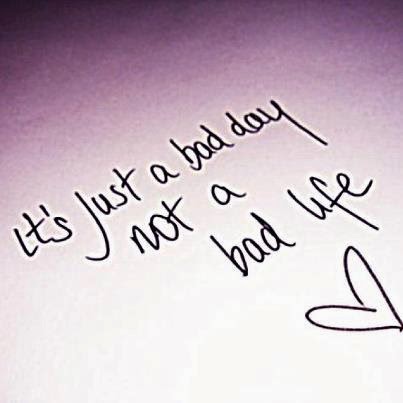 it's just a bad day
not a
bad life